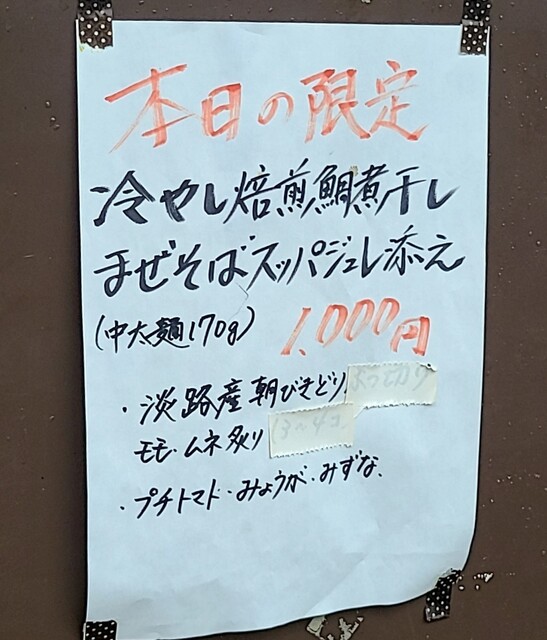 本日の限定
冷やし焙煎鯛煮干し
まぜそばスッパジュレ添え
(中太麺170g) 1,000円
・淡路産朝びきどり
モモ・ムネ炙り
・プチトマト・みょうが・みずな、